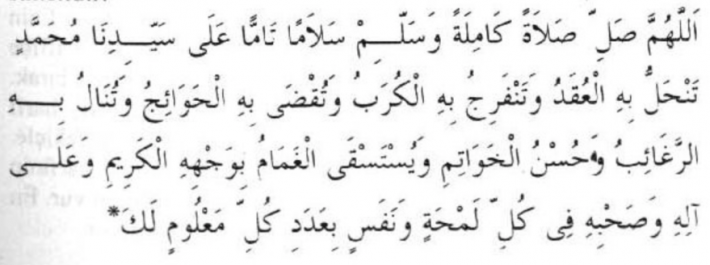 اَللَّهُمَّ صَلِّ صَلَاةً كَامِلَةً وَسَلِّمْ سَلَامًا تَامًّا عَلَى سَيِّدِنَا مُحَمَّدٍ
تَنْحَلُّ بِهِ الْعُقَدُ وَتَنْفَرِجُ بِهِ الْكُرَبُ وَتُقْضَى بِهِ الْحَوَائِجُ وَتُنَالُ بِهِ
الرَّغَائِبُ وَحُسْنُ الْخَوَاتِمِ وَيُسْتَسْقَى الْغَمَامُ بِوَجْهِهِ الْكَرِيمِ وَعَلَى
آلِهِ وَصَحْبِهِ فِى كُلِّ لَمْحَةٍ وَنَفَسٍ بِعَدَدِ كُلِّ مَعْلُومٍ لَكَ*